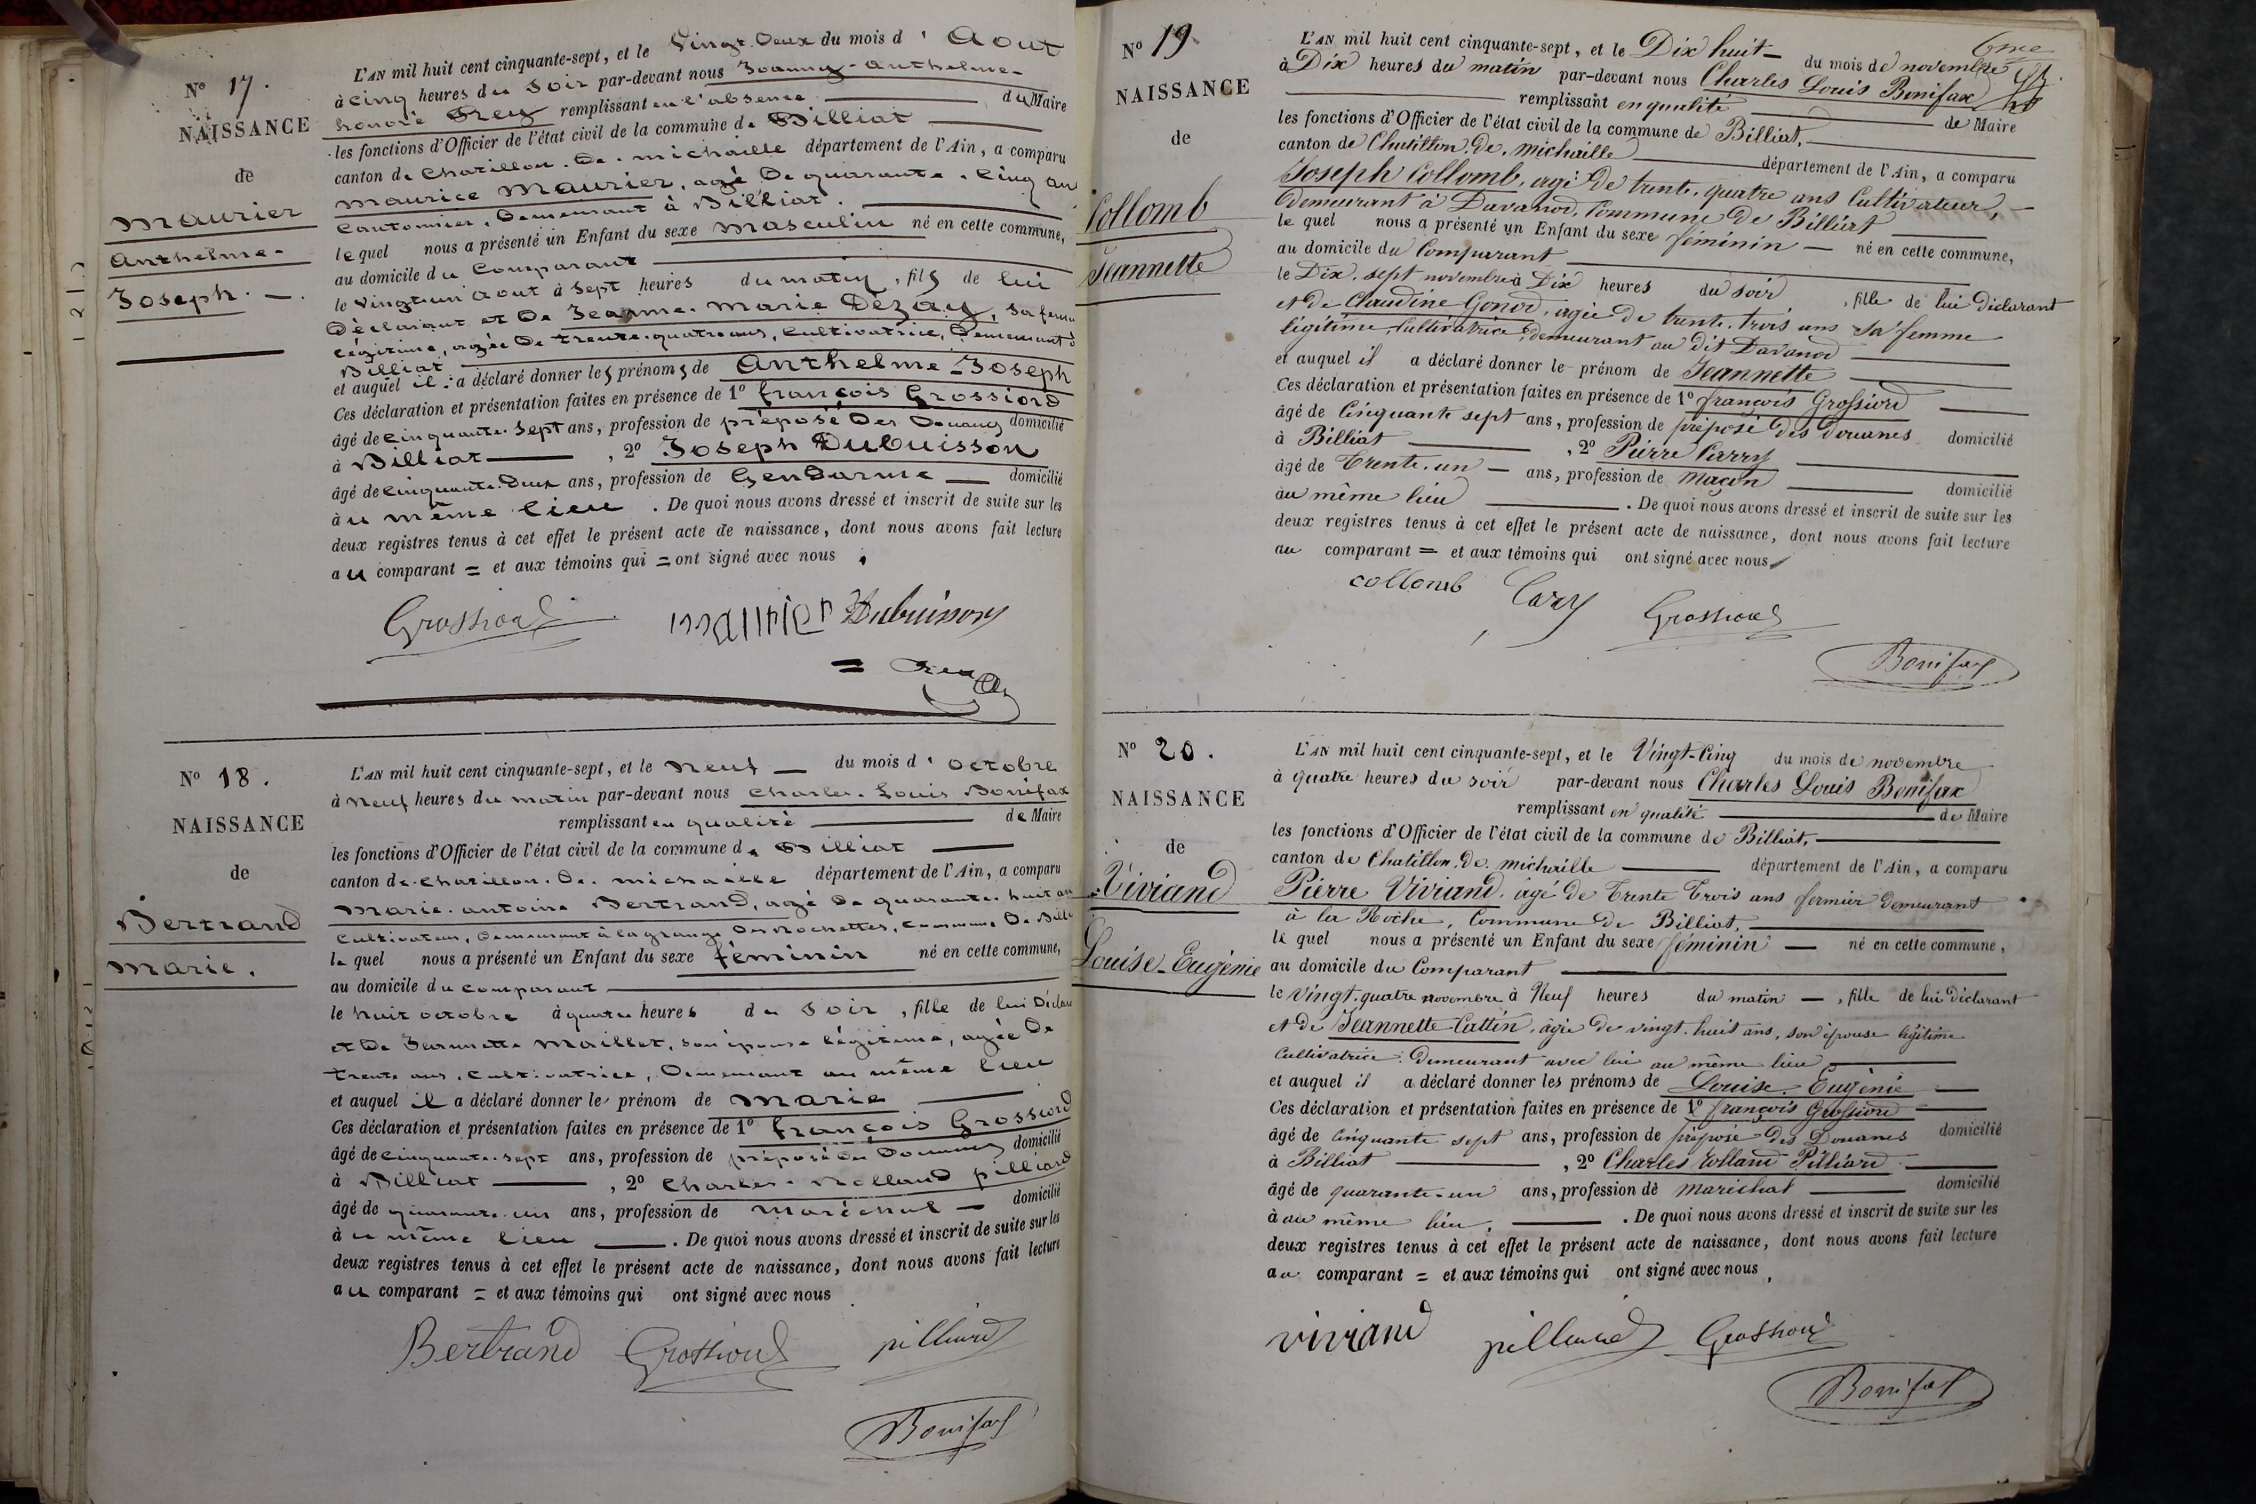 N° 17.
NAISSANCE
de
Maurier
Anthelme-
Joseph. —.
L'AN mil huit cent cinquante-sept, et le Vingt-Deux du mois d'Aout
à cinq heures du Soir par-devant nous Joanny-Anthelme-
honoré Rey remplissant en l'absence du Maire
les fonctions d'Officier de l'état civil de la commune de Billiat
canton de Chatillon-De-michaille département de l'Ain, a comparu
maurice Maurier, agé De quarante-Cinq ans
Cantonnier, Demeurant à Billiat.
lequel nous a présenté un Enfant du sexe masculin né en cette commune,
au domicile du Comparant
le Vingt un aout à Sept heures du matin, fils de lui
Déclarant et De Jeanne-Marie Dézay, sa femme
légitime, agée De trente-quatre ans, Cultivatrice, Demeurant à
Billiat
et auquel il a déclaré donner les prénoms de Anthelme-Joseph
Ces déclaration et présentation faites en présence de 1° françois Grossiord
âgé de Cinquante-Sept ans, profession de préposé Des Douanes domicilié
à Billiat, 2° Joseph Dubuisson
âgé de Cinquante-Deux ans, profession de Gendarme domicilié
au même lieu. De quoi nous avons dressé et inscrit de suite sur les
deux registres tenus à cet effet le présent acte de naissance, dont nous avons fait lecture
au comparant = et aux témoins qui = ont signé avec nous.
Grossiord maurier Dubuisson
= Rey
N° 18.
NAISSANCE
de
Bertrand
Marie.
L'AN mil huit cent cinquante-sept, et le Neuf du mois d'octobre
à Neuf heures du matin par-devant nous Charles-Louis Bonifax
remplissant en qualité de Maire
les fonctions d'Officier de l'état civil de la commune de Billiat
canton de Chatillon-De-michaille département de l'Ain, a comparu
Marie-antoine Bertrand, agé De quarante-huit ans
Cultivateur, Demeurant à la grange Des Rochettes, Commune De Billiat
lequel nous a présenté un Enfant du sexe féminin né en cette commune,
au domicile du comparant
le huit octobre à quatre heures du Soir, fille de lui Déclarant
et De Jeannette Maillet, son épouse légitime, agée De
trente ans, Cultivatrice, Demeurant au même lieu
et auquel il a déclaré donner le prénom de Marie
Ces déclaration et présentation faites en présence de 1° François Grossiord
âgé de Cinquante-sept ans, profession de préposé Des Douanes domicilié
à Billiat, 2° Charles-Rolland pilliard
âgé de quarante-un ans, profession de Maréchal domicilié
au même lieu. De quoi nous avons dressé et inscrit de suite sur les
deux registres tenus à cet effet le présent acte de naissance, dont nous avons fait lecture
au comparant = et aux témoins qui ont signé avec nous
Bertrand Grossiord pilliard
Bonifax
N° 19.
NAISSANCE
de
Collomb
Jeannette
6me
L'AN mil huit cent cinquante-sept, et le Dix huit du mois de novembre
à Dix heures du matin par-devant nous Charles Louis Bonifax
remplissant en qualité de Maire
les fonctions d'Officier de l'état civil de la commune de Billiat,
canton de Chatillon-de-michaille département de l'Ain, a comparu
Joseph Collomb, agé de trente-quatre ans Cultivateur,
demeurant à Davanod, Commune de Billiat
lequel nous a présenté un Enfant du sexe féminin né en cette commune,
au domicile du Comparant
le Dix-sept novembre à Dix heures du soir, fille de lui déclarant
et de Claudine Gonod, agée de trente-trois ans sa femme
légitime, Cultivatrice, demeurant au dit Davanod
et auquel il a déclaré donner le prénom de Jeannette
Ces déclaration et présentation faites en présence de 1° françois Grossiord
âgé de Cinquante sept ans, profession de préposé des Douanes domicilié
à Billiat, 2° Pierre Carry
âgé de Trente-un ans, profession de Maçon domicilié
au même lieu. De quoi nous avons dressé et inscrit de suite sur les
deux registres tenus à cet effet le présent acte de naissance, dont nous avons fait lecture
au comparant = et aux témoins qui ont signé avec nous
collomb Cary Grossiord
Bonifax
N° 20.
NAISSANCE
de
Viviand
Louise-Eugénie
L'AN mil huit cent cinquante-sept, et le Vingt-Cinq du mois de novembre
à quatre heures du soir par-devant nous Charles Louis Bonifax
remplissant en qualité de Maire
les fonctions d'Officier de l'état civil de la commune de Billiat,
canton de Chatillon-de-michaille département de l'Ain, a comparu
Pierre Viviand, âgé de Trente Trois ans fermier demeurant
à la Roche, Commune de Billiat,
lequel nous a présenté un Enfant du sexe féminin né en cette commune,
au domicile du Comparant
le Vingt-quatre novembre à Neuf heures du matin, fille de lui déclarant
et de Jeannette Cattin, âgée de vingt-huit ans, son épouse légitime
Cultivatrice, demeurant avec lui au même lieu
et auquel il a déclaré donner les prénoms de Louise-Eugénie
Ces déclaration et présentation faites en présence de 1° françois Grossiord
âgé de Cinquante sept ans, profession de préposé des Douanes domicilié
à Billiat, 2° Charles Rolland Pilliard
âgé de quarante-un ans, profession de Maréchal domicilié
à au même lieu. De quoi nous avons dressé et inscrit de suite sur les
deux registres tenus à cet effet le présent acte de naissance, dont nous avons fait lecture
au comparant = et aux témoins qui ont signé avec nous,
viviand pilliard Grossiord
Bonifax